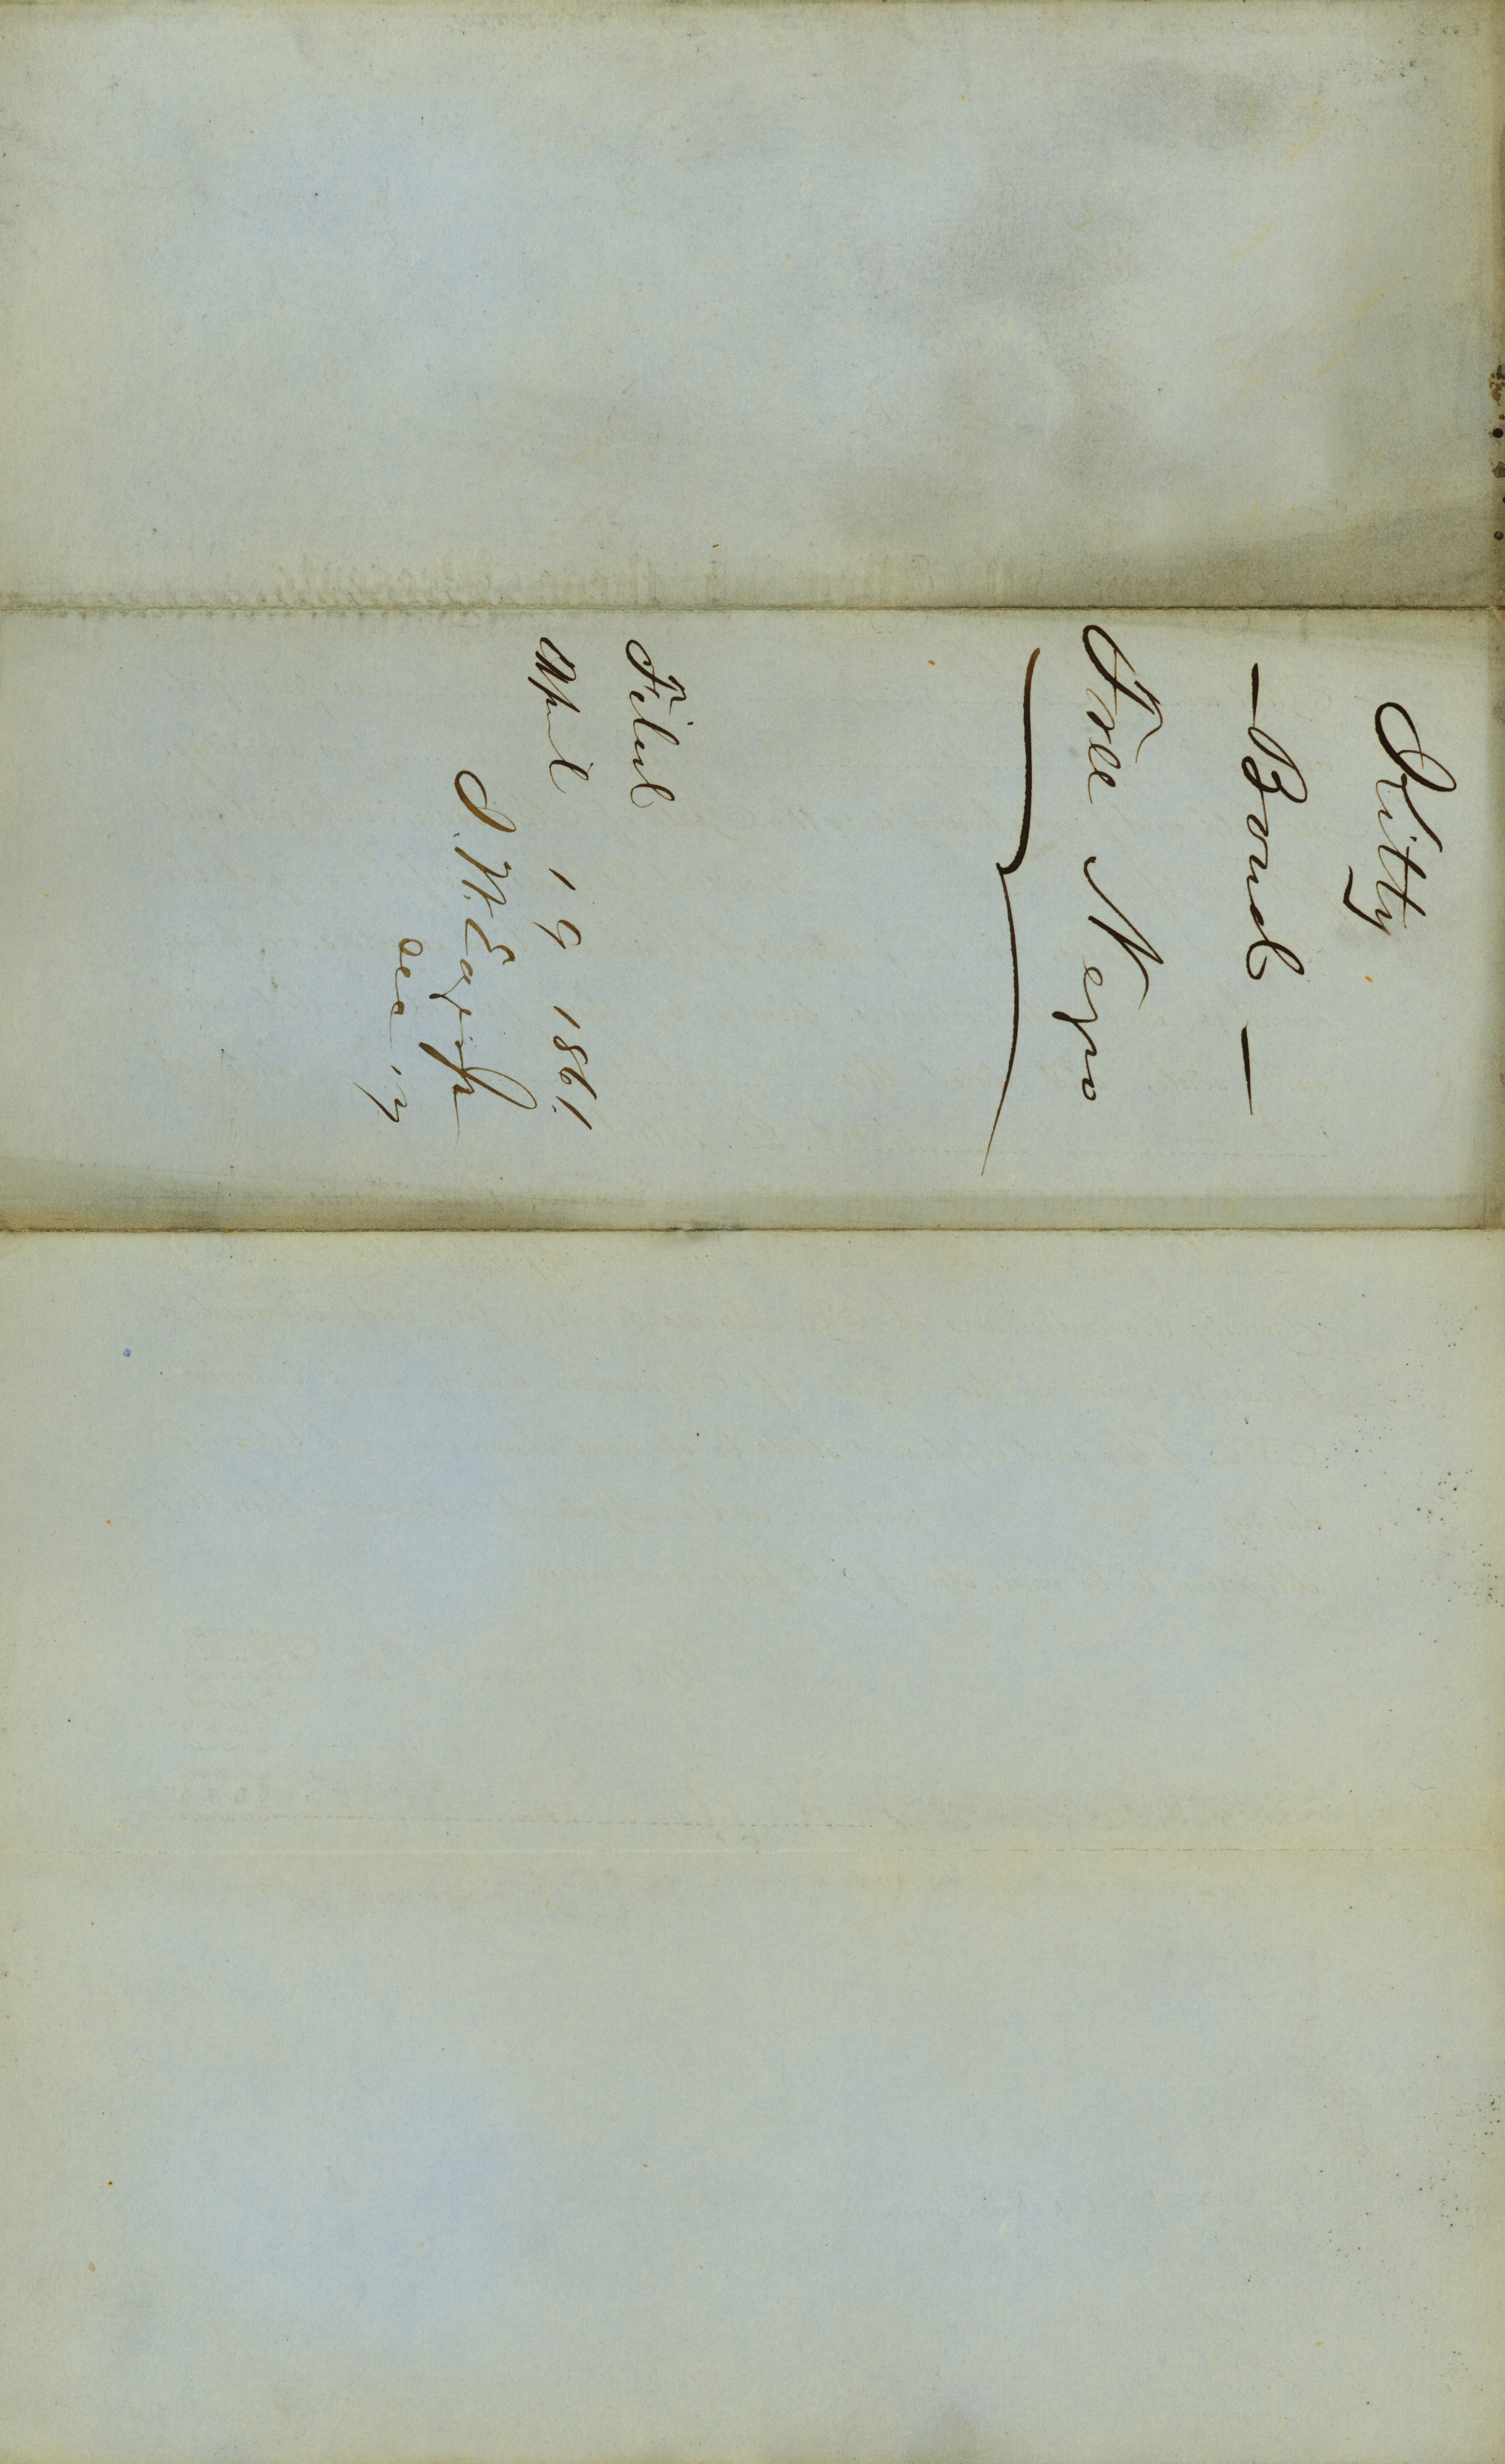 Kitty
— Bond —
Free Negro
Filed
Apl 19 1861